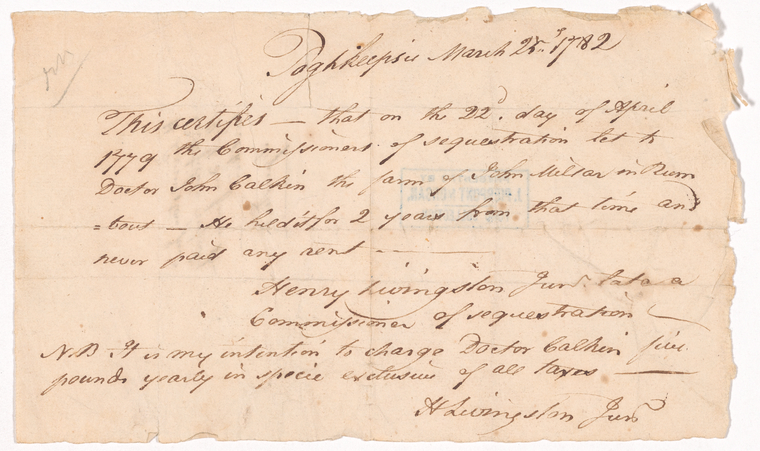 Poghkeepsie March 25.t 1782
This certifies — that on the 22d. day of April
1779 the Commissioners of sequestration let to
Doctor John Calkin the farm of John Millar in Rum
=bout — He held it for 2 years from that time and
never paid any rent —
Henry Livingston Junr. late a
Commissioner of sequestration
N.B. It is my intention to charge Doctor Calkin five
pounds yearly in specie exclusive of all taxes —
H Livingston Junr